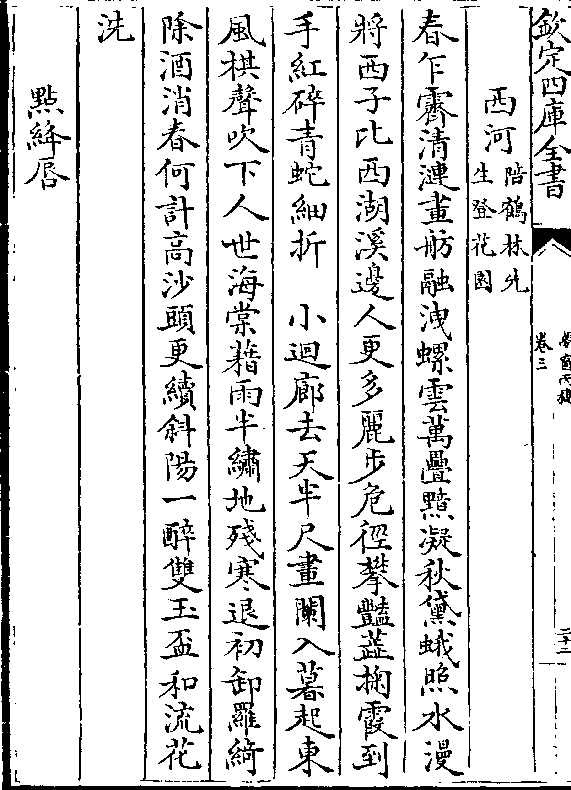 欽定四庫全書
夢窗丙稿
卷三
西河 陪鶴林先生登花園
春乍霽清漣畫舫融洩螺雲萬疊黯凝秋黛蛾照水漫
將西子比西湖溪邊人更多麗步危徑攀豔蕋掬霞到
手紅碎青蛇細折　小迴廊去天半尺畫闌入暮起東
風棋聲吹下人世海棠藉雨半繡地殘寒退初卸羅綺
除酒消春何計高沙頭更續斜陽一醉雙玉盃和流花
洗
點絳唇